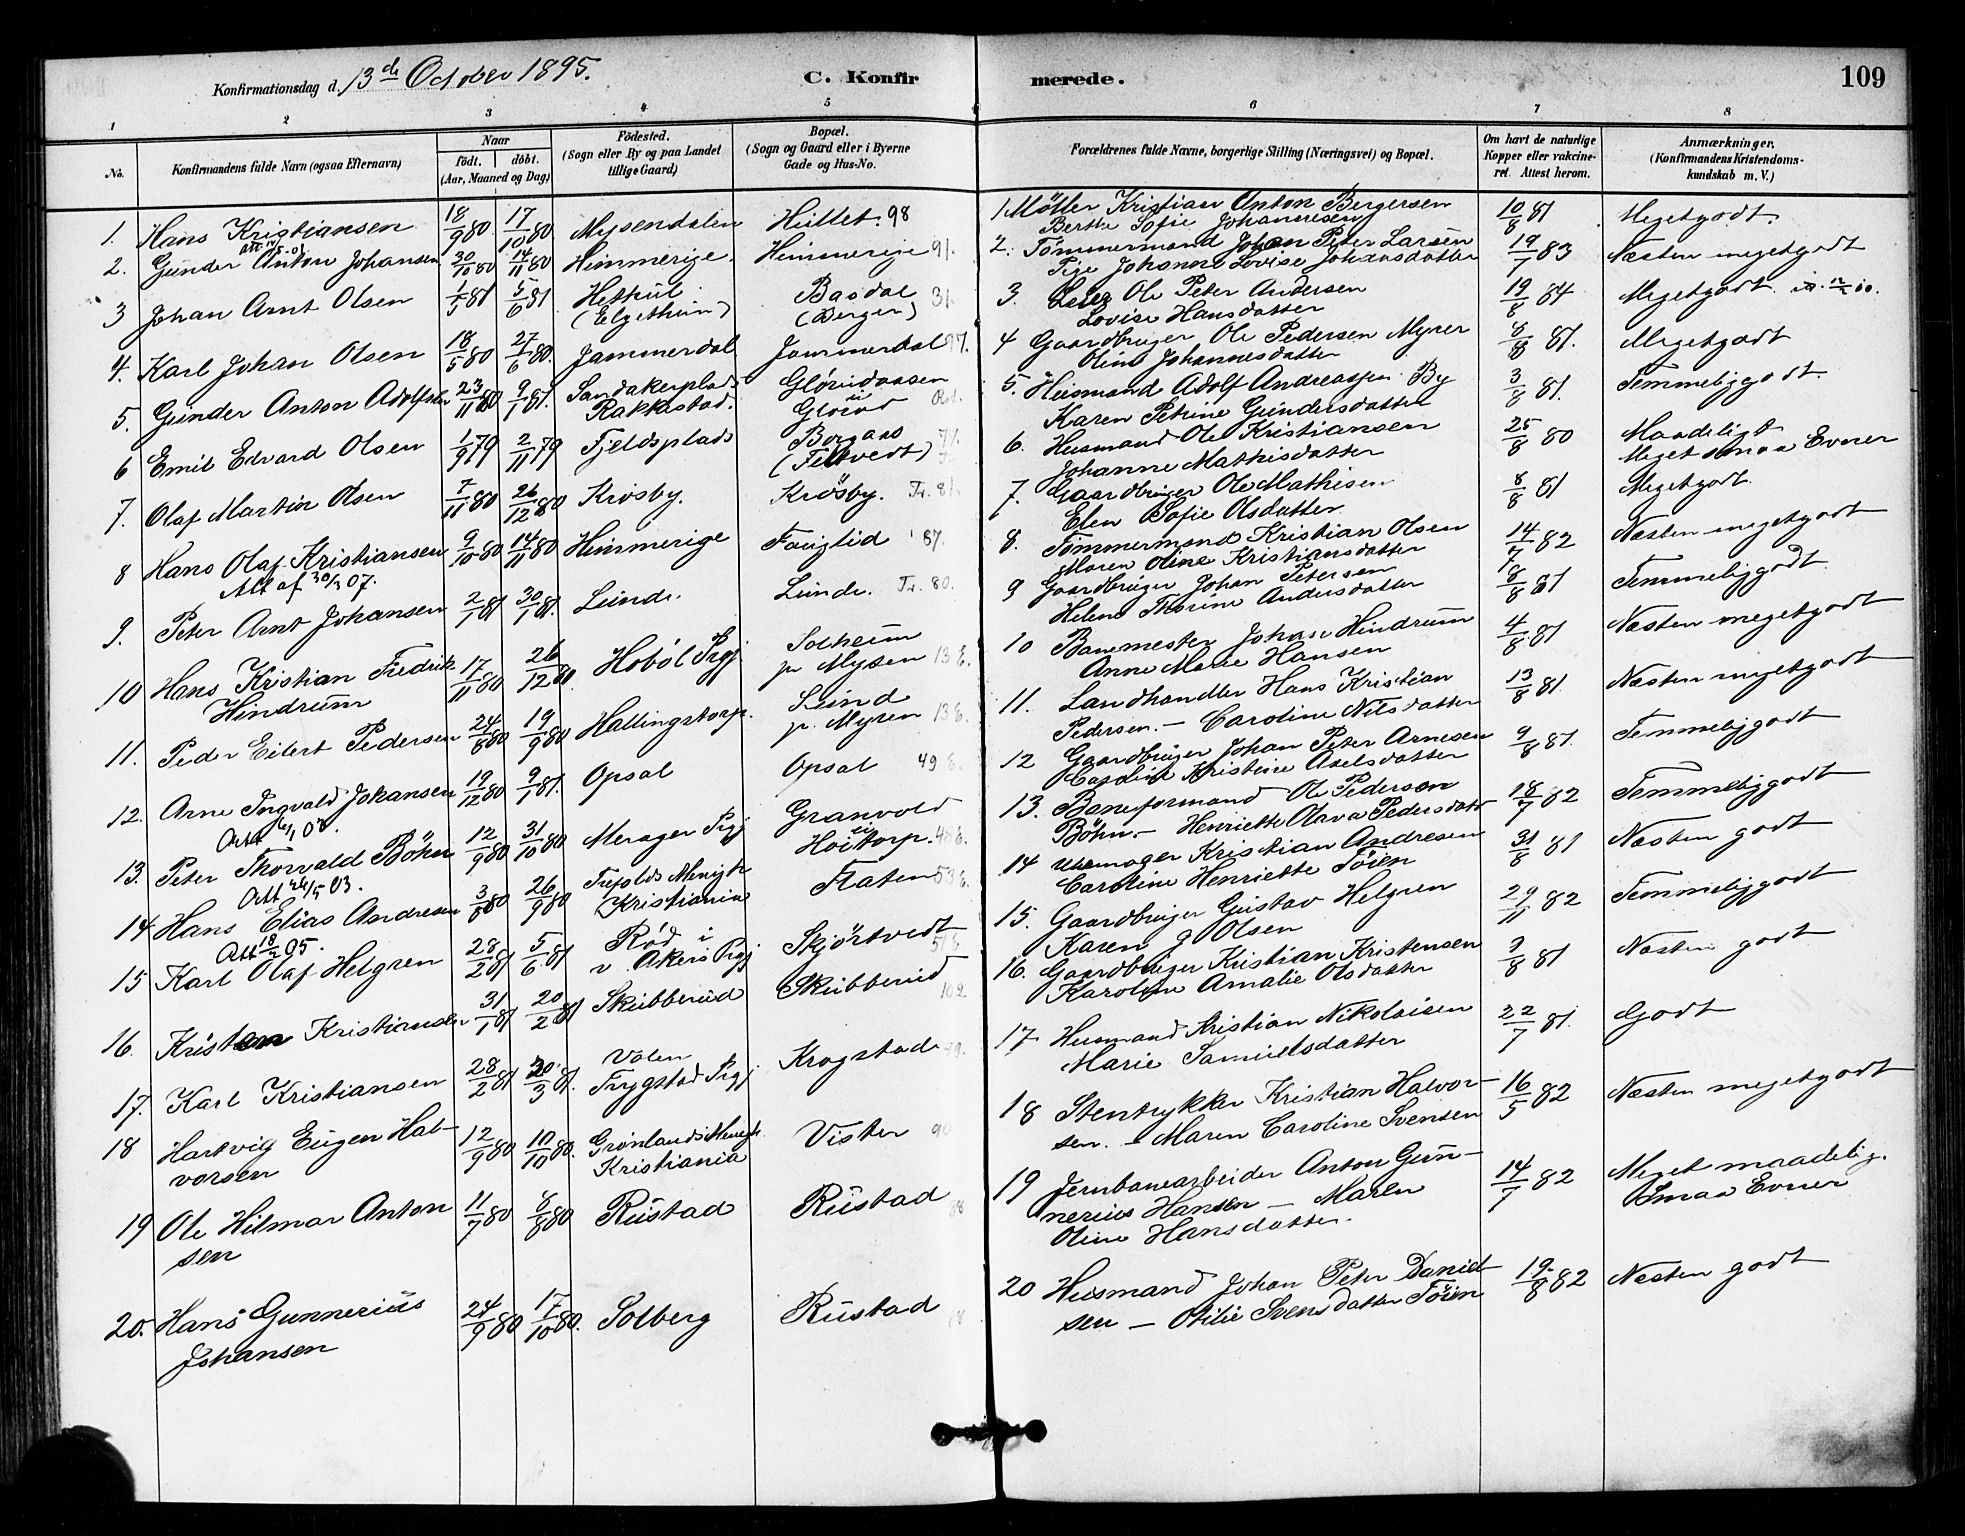 Konfirmationsdag d. 13de October 1895.
C. Konfirmerede.
109
1 2 3 4 5 6 7 8
No.
Konfirmandens fulde Navn (ogsaa Efternavn)
Naar
födt. döbt.
(Aar, Maaned og Dag)
Födested.
(Sogn eller By og paa Landet
tillige Gaard)
Bopæl.
(Sogn og Gaard eller i Byerne
Gade og Hus-No.
Forældrenes fulde Navne, borgerlige Stilling (Næringsvei) og Bopæl.
Om havt de naturlige
Kopper eller vakcine-
ret. Attest herom.
Anmærkninger.
(Konfirmandens Kristendoms-
kundskab m. V.)
1. Hans Kristiansen 18/9 80 17/10 80 Mysendalen Hultet. 98
1 Møller Kristian Anton Bergersen 10/8 81 Megetgodt
Berthe Sofie Johannesen
2. Gunder Anton Johansen 30/10 80 14/11 80 Himmerige. Himmerige 91.
2. Tömmermand Johan Peter Larsen 19/7 83 Næsten megetgodt
Pige Johanne Lovise Johansdatter
3 Johan Arnt Olsen 1/5 81 5/6 81 Basdal 31
(Berger)
3. Ole Peter Andersen 19/8 84 Megetgodt
Lovise Hansdatter
4. Karl Johan Olsen 18/5 80 27/6 80. Jammerdal Jammerdal 97.
4 Gaardbruger Ole Pedersen Myrer 8/8 81. Megetgodt
Oline Johannesdatter
5. Gunder Anton Adolfsen 23/11 80 9/1 81. Sandakerplads
Rakkestad.
5. Husmand Adolf Andreassen By 3/8 81. Temmeliggodt.
Karen Petrine Gundersdatter
6 Emil Edvard Olsen 1/9 79 2/11 79 Fjeldsplads Borgaas 71.
6. Husmand Ole Kristiansen 25/8 80 Maadeligt
Johanne Mathisdatter Meget smaa Evner
7. Olaf Martin Olsen 7/11 80 26/12 80 Krosby. Krösby. Tr. 81.
7. Gaardbruger Ole Mathisen 8/8 81 Megetgodt.
Elen Sofie Olsdatter
8 Hans Olaf Kristiansen 9/10 80 14/11 80 Himmerige Fauglid 87.
Att af 30/3 07.
8. Tømmermand Kristian Olsen 14/7 82 Næsten megetgodt
Maren Oline Kristiansdatter
9. Peter Arnt Johansen 2/1 81 30/1 81. Lunde. Lunde. Tr. 80.
9 Gaardbruger Johan Petersen 18/8 81 Temmeliggodt.
Helene Thorine Andersdatter
10 Hans Kristian Fredrik 17/11 80 26/12 80. Hobøl Prgj Solheim
Hindrum p. Mysen 13 E.
10 Banemester Johan Hindrum 4/8 81 Næsten megetgodt
Anne Marie Hansen
11. Peder Eilert Pedersen 24/8 80 19/9 80 Hallingstorp. Lund
p. Mysen 13 E.
11. Landhandler Hans Kristian 13/8 81 Næsten megetgodt
Pedersen. – Caroline Nilsdatter
12. Arne Ingvald Johansen 19/12 80 9/1 81. Opsal Opsal 49 E.
12 Gaardbruger Johan Peter Arnesen 9/8 81. Temmeliggodt
Caroline Kristine Axelsdatter
13. Peter Thorvald Böhn 12/9 80 31/10 80 Merager Prgj Granvold
i Hoitorp. 48 E.
Att 26/5 03.
13. Baneformand Ole Pedersen 18/7 82 Temmeliggodt
Böhn. – Henriette Pedersdatt
14 Hans Elias Andresen 3/8 80 26/9 80 Trefolds Menigh
Kristiania Flaten 53 E.
Att 18/2 05.
14 Uhrmager Kristian Andresen 31/8 81 Næsten godt
Caroline Henriette Töien
15 Karl Olaf Helgren 28/2 81 5/6 81 Rød i
v. Akers Prgj Skjörtvedt
15. Gaardbruger Gustav Helgren 29/11 82 Temmeliggodt
Karen G Olsen
16. Kristen Kristiansen 31/1 81 20/2 81 Skubberud Skubberud 102
16. Gaardbruger Kristian Kristensen 9/8 81 Næsten godt
Karoline Amalie Olsdatter
17. Karl Kristiansen 28/2 81 20/3 81. Volen
Trygstad Prgj Krogstad 99.
17 Husmand Kristian Nikolaisen 22/7 81. Godt
Marie Samuelsdatter
18 Hartvig Eugen Hal- 12/9 80 10/10 80. Grønlands Menigh.
vorsen Kristiania Vister 90
18 Stentrykker Kristian Halvor- 16/5 82 Næsten megetgodt
sen. – Maren Caroline Svensen
19 Ole Hilmar Anton 11/7 80 8/8 80 Rustad Rustad 88
sen
19 Jernbanearbeider Anton Gun- 14/7 82 Meget maadelig.
nerius Hansen – Maren Smaa Evner
Oline Hansdatter.
20. Hans Gunnerius 24/9 80 17/10 80. Solberg Rustad 88
Johansen
20 Husmand Johan Peter Daniel- 19/8 82 Næsten godt
sen – Otilie Svensdatter Töien